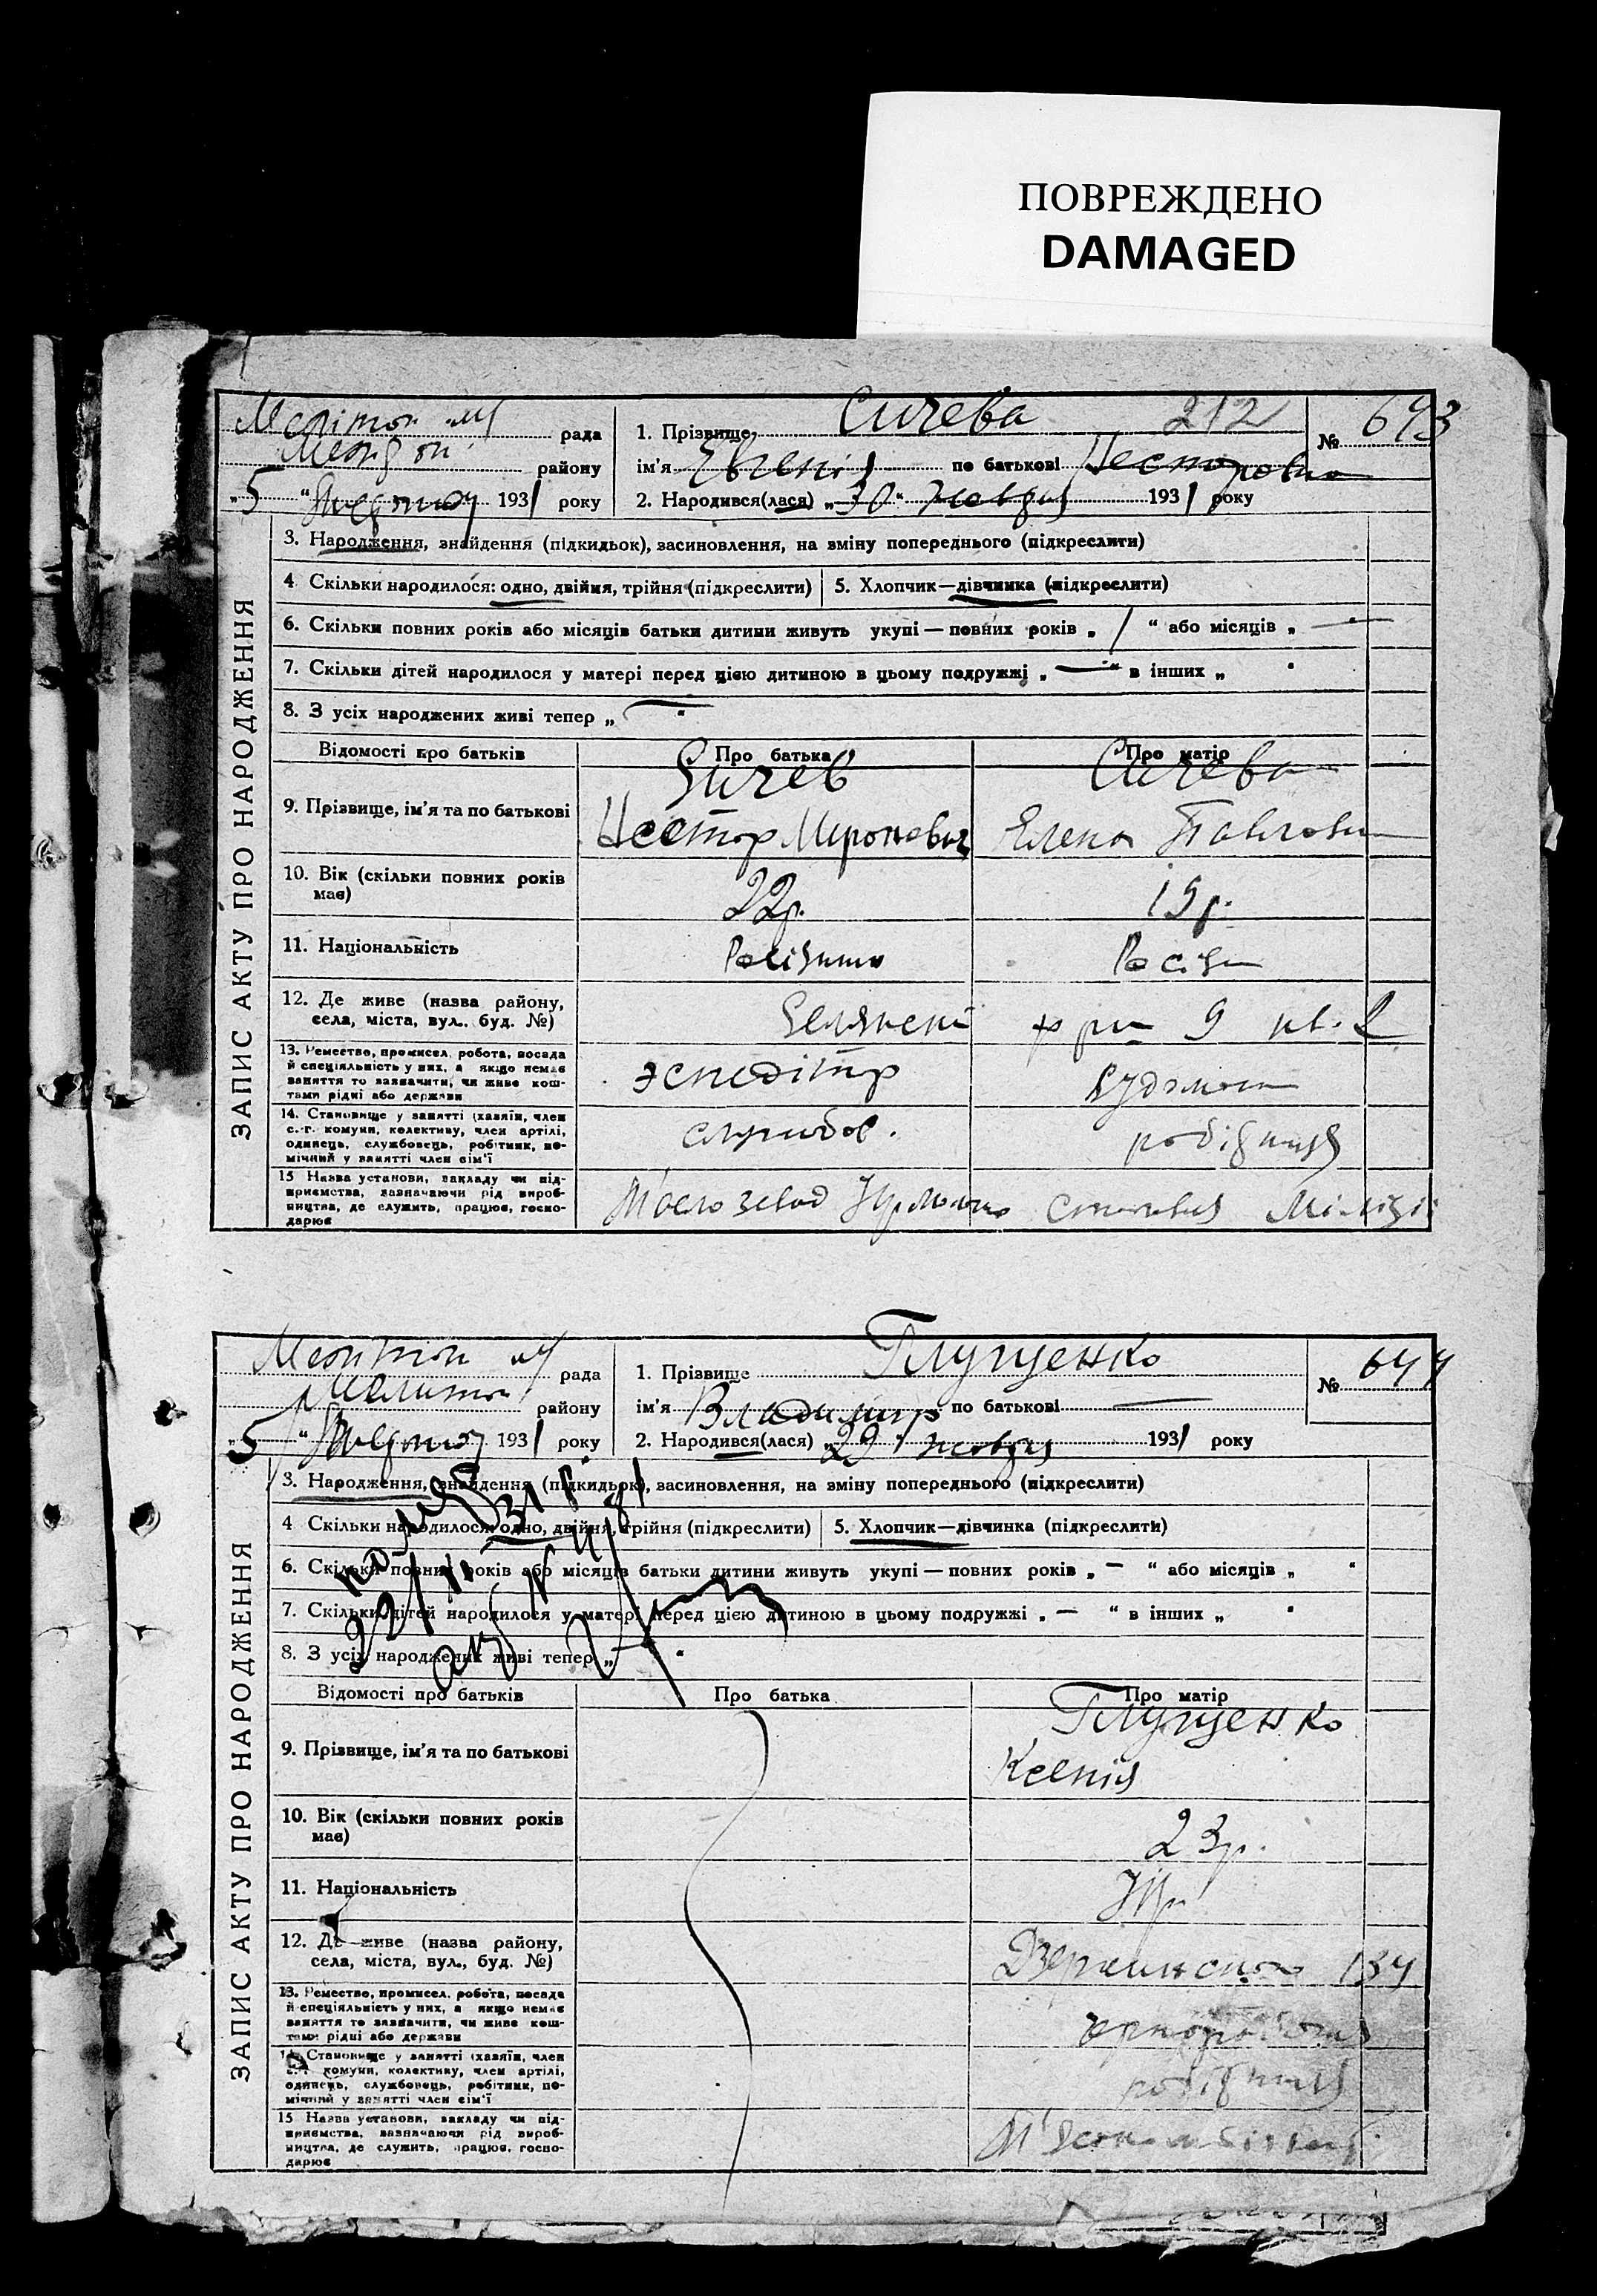 ПОВРЕЖДЕНО
DAMAGED
рада
1. Прізвище Сичева 212
№ 643
району
ім'я Євгенія по батькові Несторовна
„5“ 1931 року
2. Народився(лася) „30“ жовтня 1931 року
ЗАПИС АКТУ ПРО НАРОДЖЕННЯ
3. Народження, знайдення (підкидьок), засиновлення, на зміну попереднього (підкреслити)
4 Скільки народилося: одно, двійня, трійня (підкреслити)
5. Хлопчик—дівчинка (підкреслити)
6. Скільки повних років або місяців батьки дитини живуть укупі — повних років „ / “ або місяців „ —
7. Скільки дітей народилося у матері перед цією дитиною в цьому подружжі „ — “ в інших „ “
8. З усіх народжених живі тепер „ — “
Відомості про батьків
Про батька
Про матір
9. Прізвище, ім'я та по батькові
Сичев
Нестор Миронович
Сичева
Елена Павловна
10. Вік (скільки повних років має)
22р.
19р.
11. Національність
12. Де живе (назва району,
села, міста, вул., буд. №)
9 кв. 2
13. Ремество, промисел, робота, посада
й спеціяльність у них, а якщо немає
заняття то зазначити, чи живе кош-
тами рідні або держави
14. Становище у занятті (хазяїн, член
с.-г. комуни, колективу, член артілі,
одинець, службовець, робітник, по-
мічний у занятті член сім'ї
службов.
робітниця
15 Назва установи, закладу чи під-
приємства, зазначаючи рід вироб-
ництва, де служить, працює, госпо-
дарює
Міліції
рада
1. Прізвище Глущенко
№ 644
району
ім'я Владимір по батькові —
„5“ 1931 року
2. Народився(лася) „29“ жовтня 1931 року
ЗАПИС АКТУ ПРО НАРОДЖЕННЯ
3. Народження, знайдення (підкидьок), засиновлення, на зміну попереднього (підкреслити)
4 Скільки народилося: одно, двійня, трійня (підкреслити)
5. Хлопчик—дівчинка (підкреслити)
6. Скільки повних років або місяців батьки дитини живуть укупі — повних років „ — “ або місяців „ “
7. Скільки дітей народилося у матері перед цією дитиною в цьому подружжі „ — “ в інших „ “
8. З усіх народжених живі тепер „ “
Відомості про батьків
Про батька
Про матір
9. Прізвище, ім'я та по батькові
Глущенко
Ксенія
10. Вік (скільки повних років має)
23р.
11. Національність
Укр.
12. Де живе (назва району,
села, міста, вул., буд. №)
Дзержинского 134
13. Ремество, промисел, робота, посада
й спеціяльність у них, а якщо немає
заняття то зазначити, чи живе кош-
тами рідні або держави
14. Становище у занятті (хазяїн, член
с.-г. комуни, колективу, член артілі,
одинець, службовець, робітник, по-
мічний у занятті член сім'ї
робітниця
15 Назва установи, закладу чи під-
приємства, зазначаючи рід вироб-
ництва, де служить, працює, госпо-
дарює